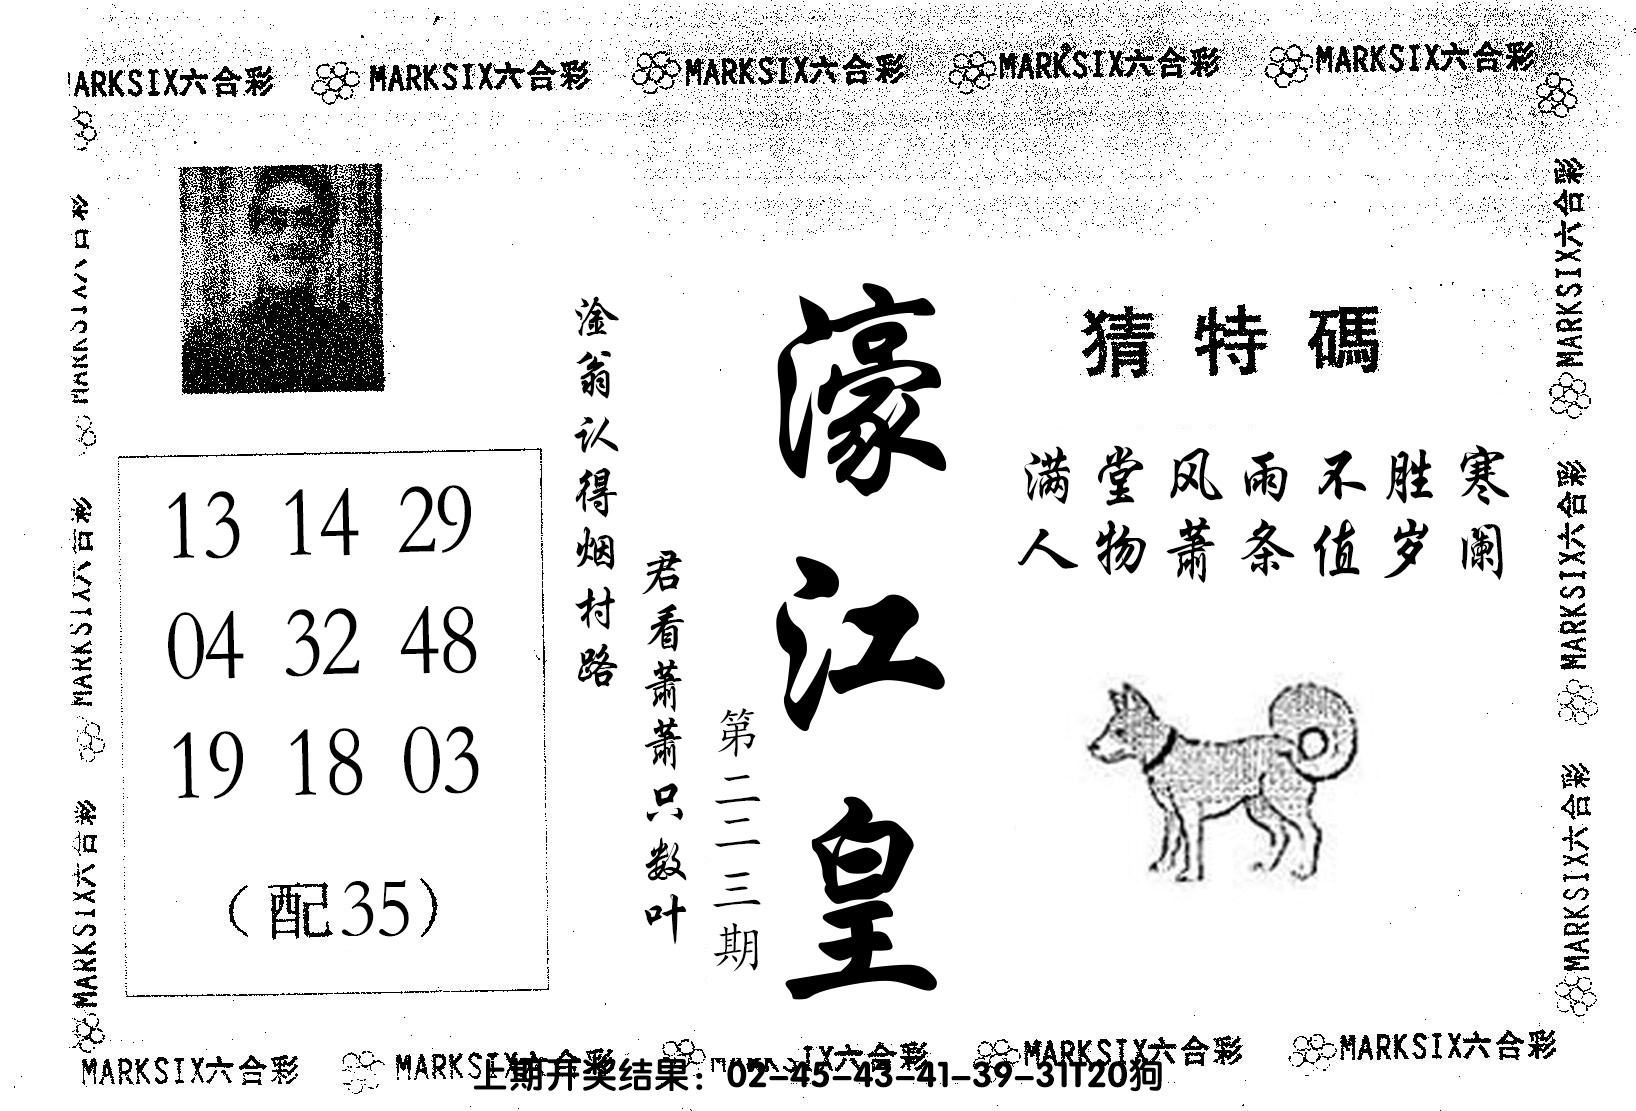 MARKSIX六合彩 MARKSIX六合彩 MARKSIX六合彩 MARKSIX六合彩 MARKSIX六合彩
猜特碼
满堂风雨不胜寒
人物萧条值岁阑
濠江皇
第二二三期
淦翁认得烟村路
君看萧萧只数叶
13 14 29
04 32 48
19 18 03
（配35）
MARKSIX六合彩
MARKSIX六合彩
MARKSIX六合彩
MARKSIX六合彩
MARKSIX六合彩
MARKSIX六合彩
MARKSIX六合彩 MARKSIX六合彩 MARKSIX六合彩 MARKSIX六合彩 MARKSIX六合彩
上期开奖结果：02-45-43-41-39-31T20狗